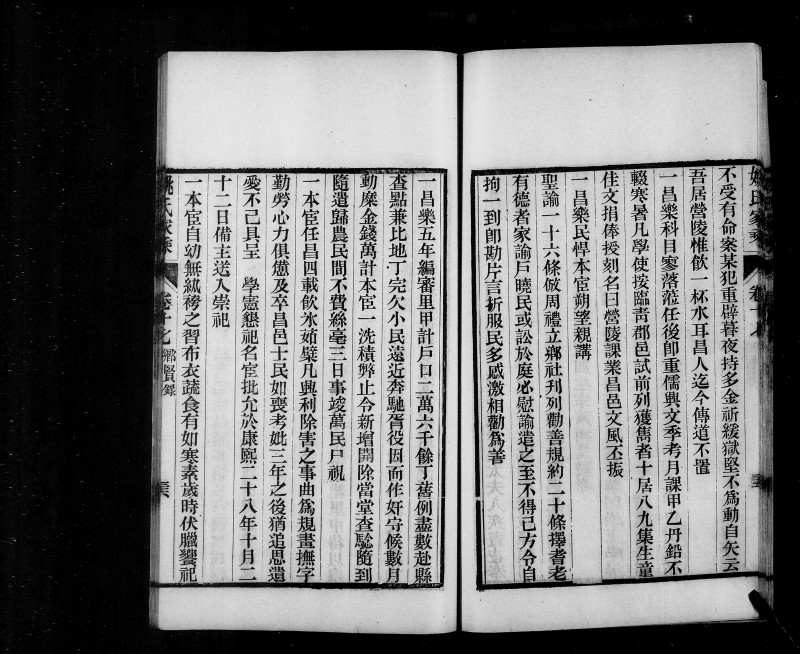 不受有命案某犯重辟暮夜持多金祈緩獄堅不為動自矢云
吾居營陵惟飲一杯水耳昌人迄今傳道不置
一昌樂科目寥落蒞任後即重儒興文季考月課甲乙丹鉛不
輟寒暑凡學使按臨青郡邑試前列獲雋者十居八九集生童
佳文捐俸授刻名曰營陵課業昌邑文風丕振
一昌樂民悍本宦朔望親講
聖諭一十六條倣周禮立鄉社刋列勸善規約二十條擇耆老
有德者家諭戶曉民或訟於庭必慰諭遣之至不得已方令自
拘一到卽勘片言折服民多感激相勸為善
姚氏家乘
卷十七
一昌樂五年編審里甲計戶口二萬六千餘丁舊例盡數赴縣
查點兼比地丁完欠小民遠近奔馳胥役因而作奸守候數月
動糜金錢萬計本宦一洗積弊止令新增開除當堂查驗隨到
隨遣歸農民間不費絲毫三日事竣萬民尸祝
一本宦任昌四載飲氷茹檗凡興利除害之事曲為規畫撫字
勤勞心力俱憊及卒昌邑士民如喪考妣三年之後猶追思遺
愛不已具呈 學憲懇祀名宦批允於康熙二十八年十月二
十二日備主送入崇祀
一本宦自幼無紈袴之習布衣蔬食有如寒素歲時伏臘饗祀
姚氏家乘
卷十七 鄉賢錄